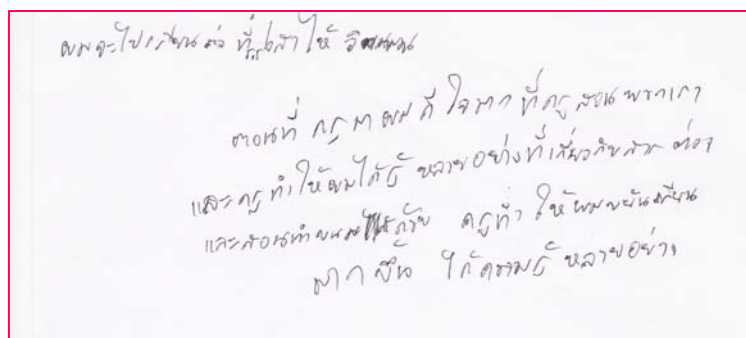 ผมจะไปเรียนต่อ ที่ ให้
ตอนที่ ครู มา ผม ดี ใจมาก ที่ครู สอน พวกเรา
และครู ทำให้ผมได้รู้ หลายอย่างที่เกี่ยวกับ ต่อง
และสอนทำขนม ครูทำ ให้ผมขยันเรียน
มาก ขึ้น ได้ความรู้ หลายอย่าง